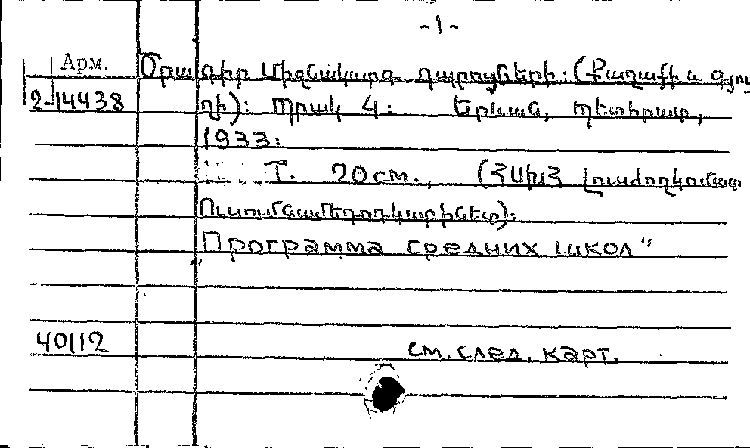 -1-
Арм.
Ծրագիր Միջնակարգ դպրոցների: (Քաղաքի և գյու
2-14438 ղի): Պրակ 4: Երևան, Պետհրատ,
1933:
Т. 20см., (ՀՍԽՀ Լուսժողկոմատ
Ուսումնամեթոդկաբինետ):
Программа средних школ"
40112 см. след. карт.